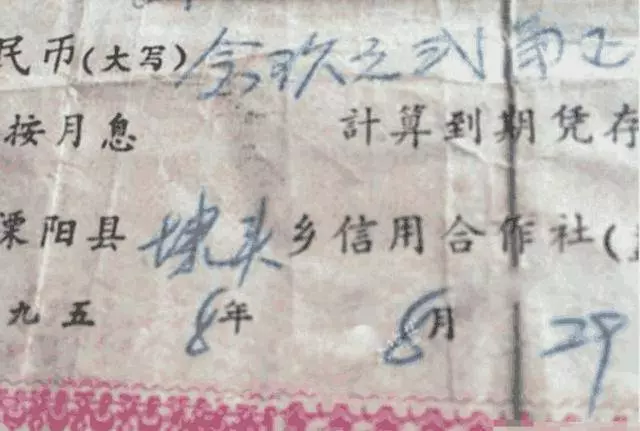 民币(大写)令玖元弍角
按月息 計算到期凭存
溧阳县埭头乡信用合作社(
九五8年 8月 29